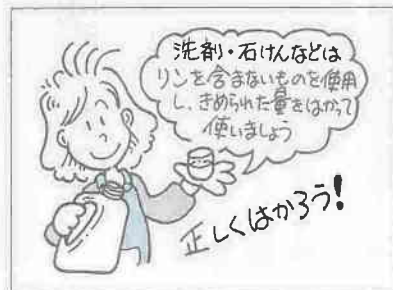 洗剤・石けんなどは
リンを含まないものを使用
し、きめられた量をはかって
使いましょう
正しくはかろう!